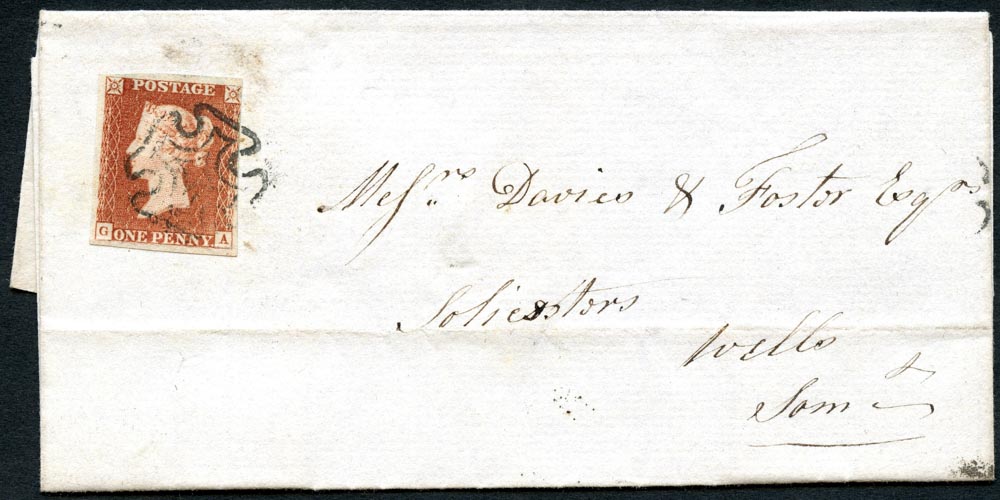 POSTAGE
G ONE PENNY A
Messrs. Davies & Foster Esqrs
Solicitors
Wells
Somt